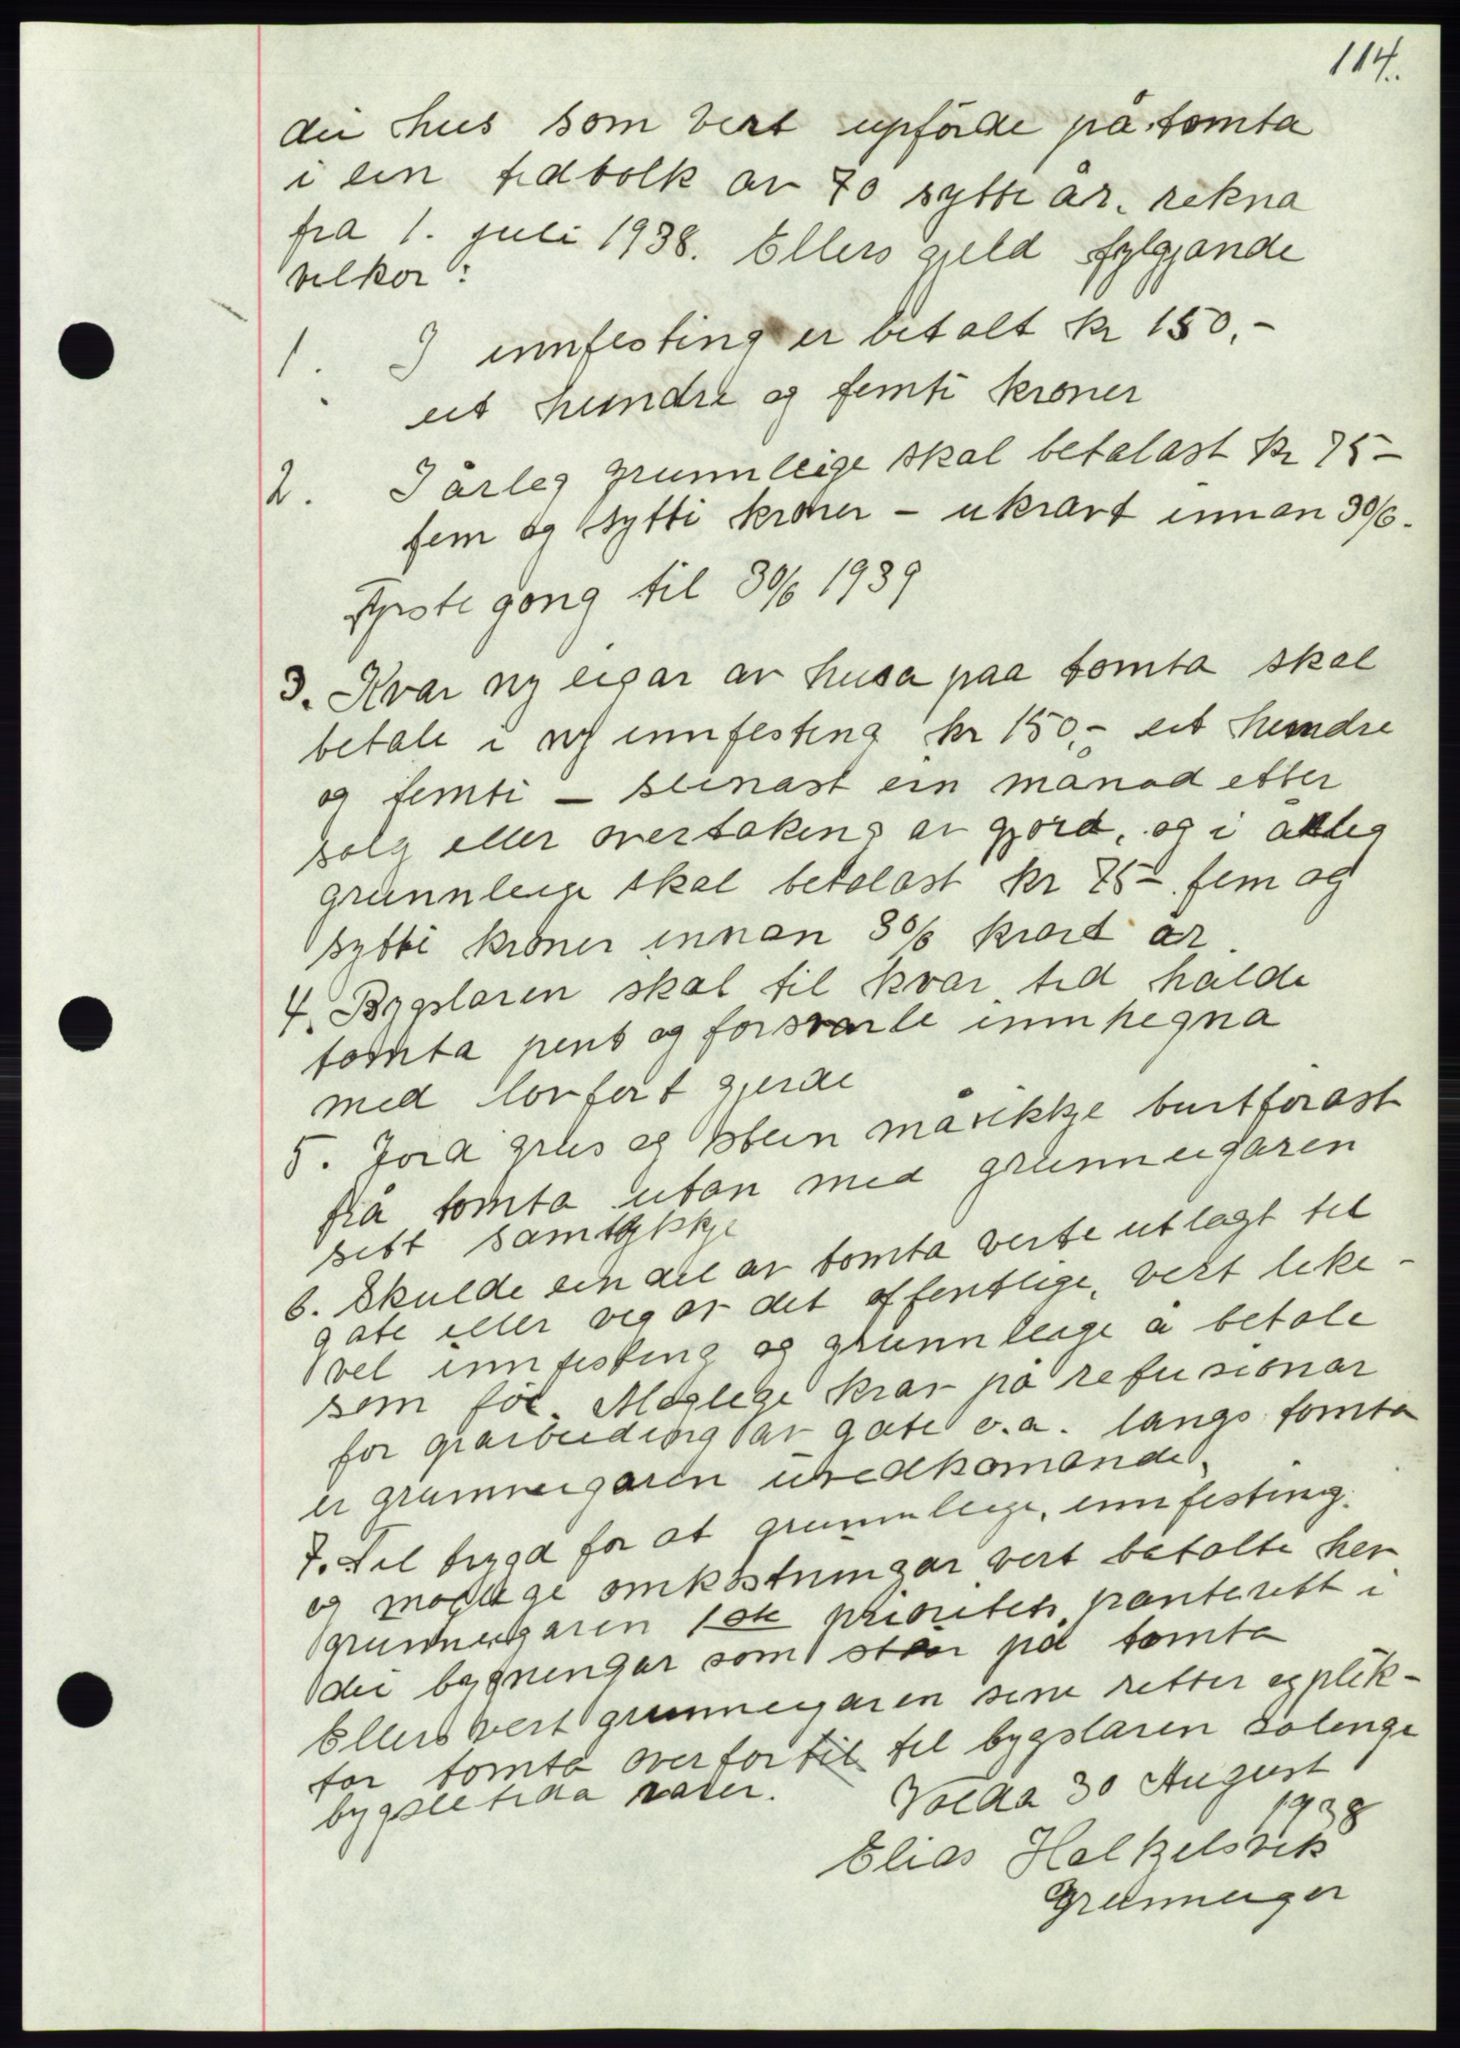 114.
dei hus som vert upförde på tomta
i ein tidbolk av 70 sytti år. rekna
fra 1. juli 1938. Ellers gjeld fylgjande
vilkor:
1. I innfesting er betalt kr 150,-
eit hundre og femti kroner
2. I årleg grunnleige skal betalast kr 75-
fem og sytti kroner - ukravt innan 30/6.
Fyrste gong til 30/6 1939
3. Kvar ny eigar av husa paa tomta skal
betale i ny innfesting kr 150,- eit hundre
og femti - seinast ein månad etter
salg eller overtaking er gjord, og i årleg
grunnleige skal betalast kr 75- fem og
sytti kroner innan 30/6 kvart år.
4. Bygslaren skal til kvar tid halde
tomta pent og forsvarle innhegna
med lovfert gjerde
5. Jord grus og stein må ikkje burtförast
frå tomta utan med grunneigaren
sitt samtykkje
6. Skulde ein del av tomta verte utlagt til
gate eller veg av det offentlige, vert like-
vel innfesting og grunnleige å betale
som för. Moglege krav på refusionar
for oparbeiding av gate o.a. langs tomta
er grunneigaren uvedkomande.
7. Til trygd for at grunnleige, innfesting.
og moglege omkostningar vert betalte hev
grunneigaren 1ste prioritets panterett i
dei bygningar som står på tomta
Ellers vert grunneigaren sine retter og plik-
tar tomta overfor til til bygslaren solenge
bygsletida varer.
Volda 30 August
1938
Elias Halkjelsvik
Grunneiger